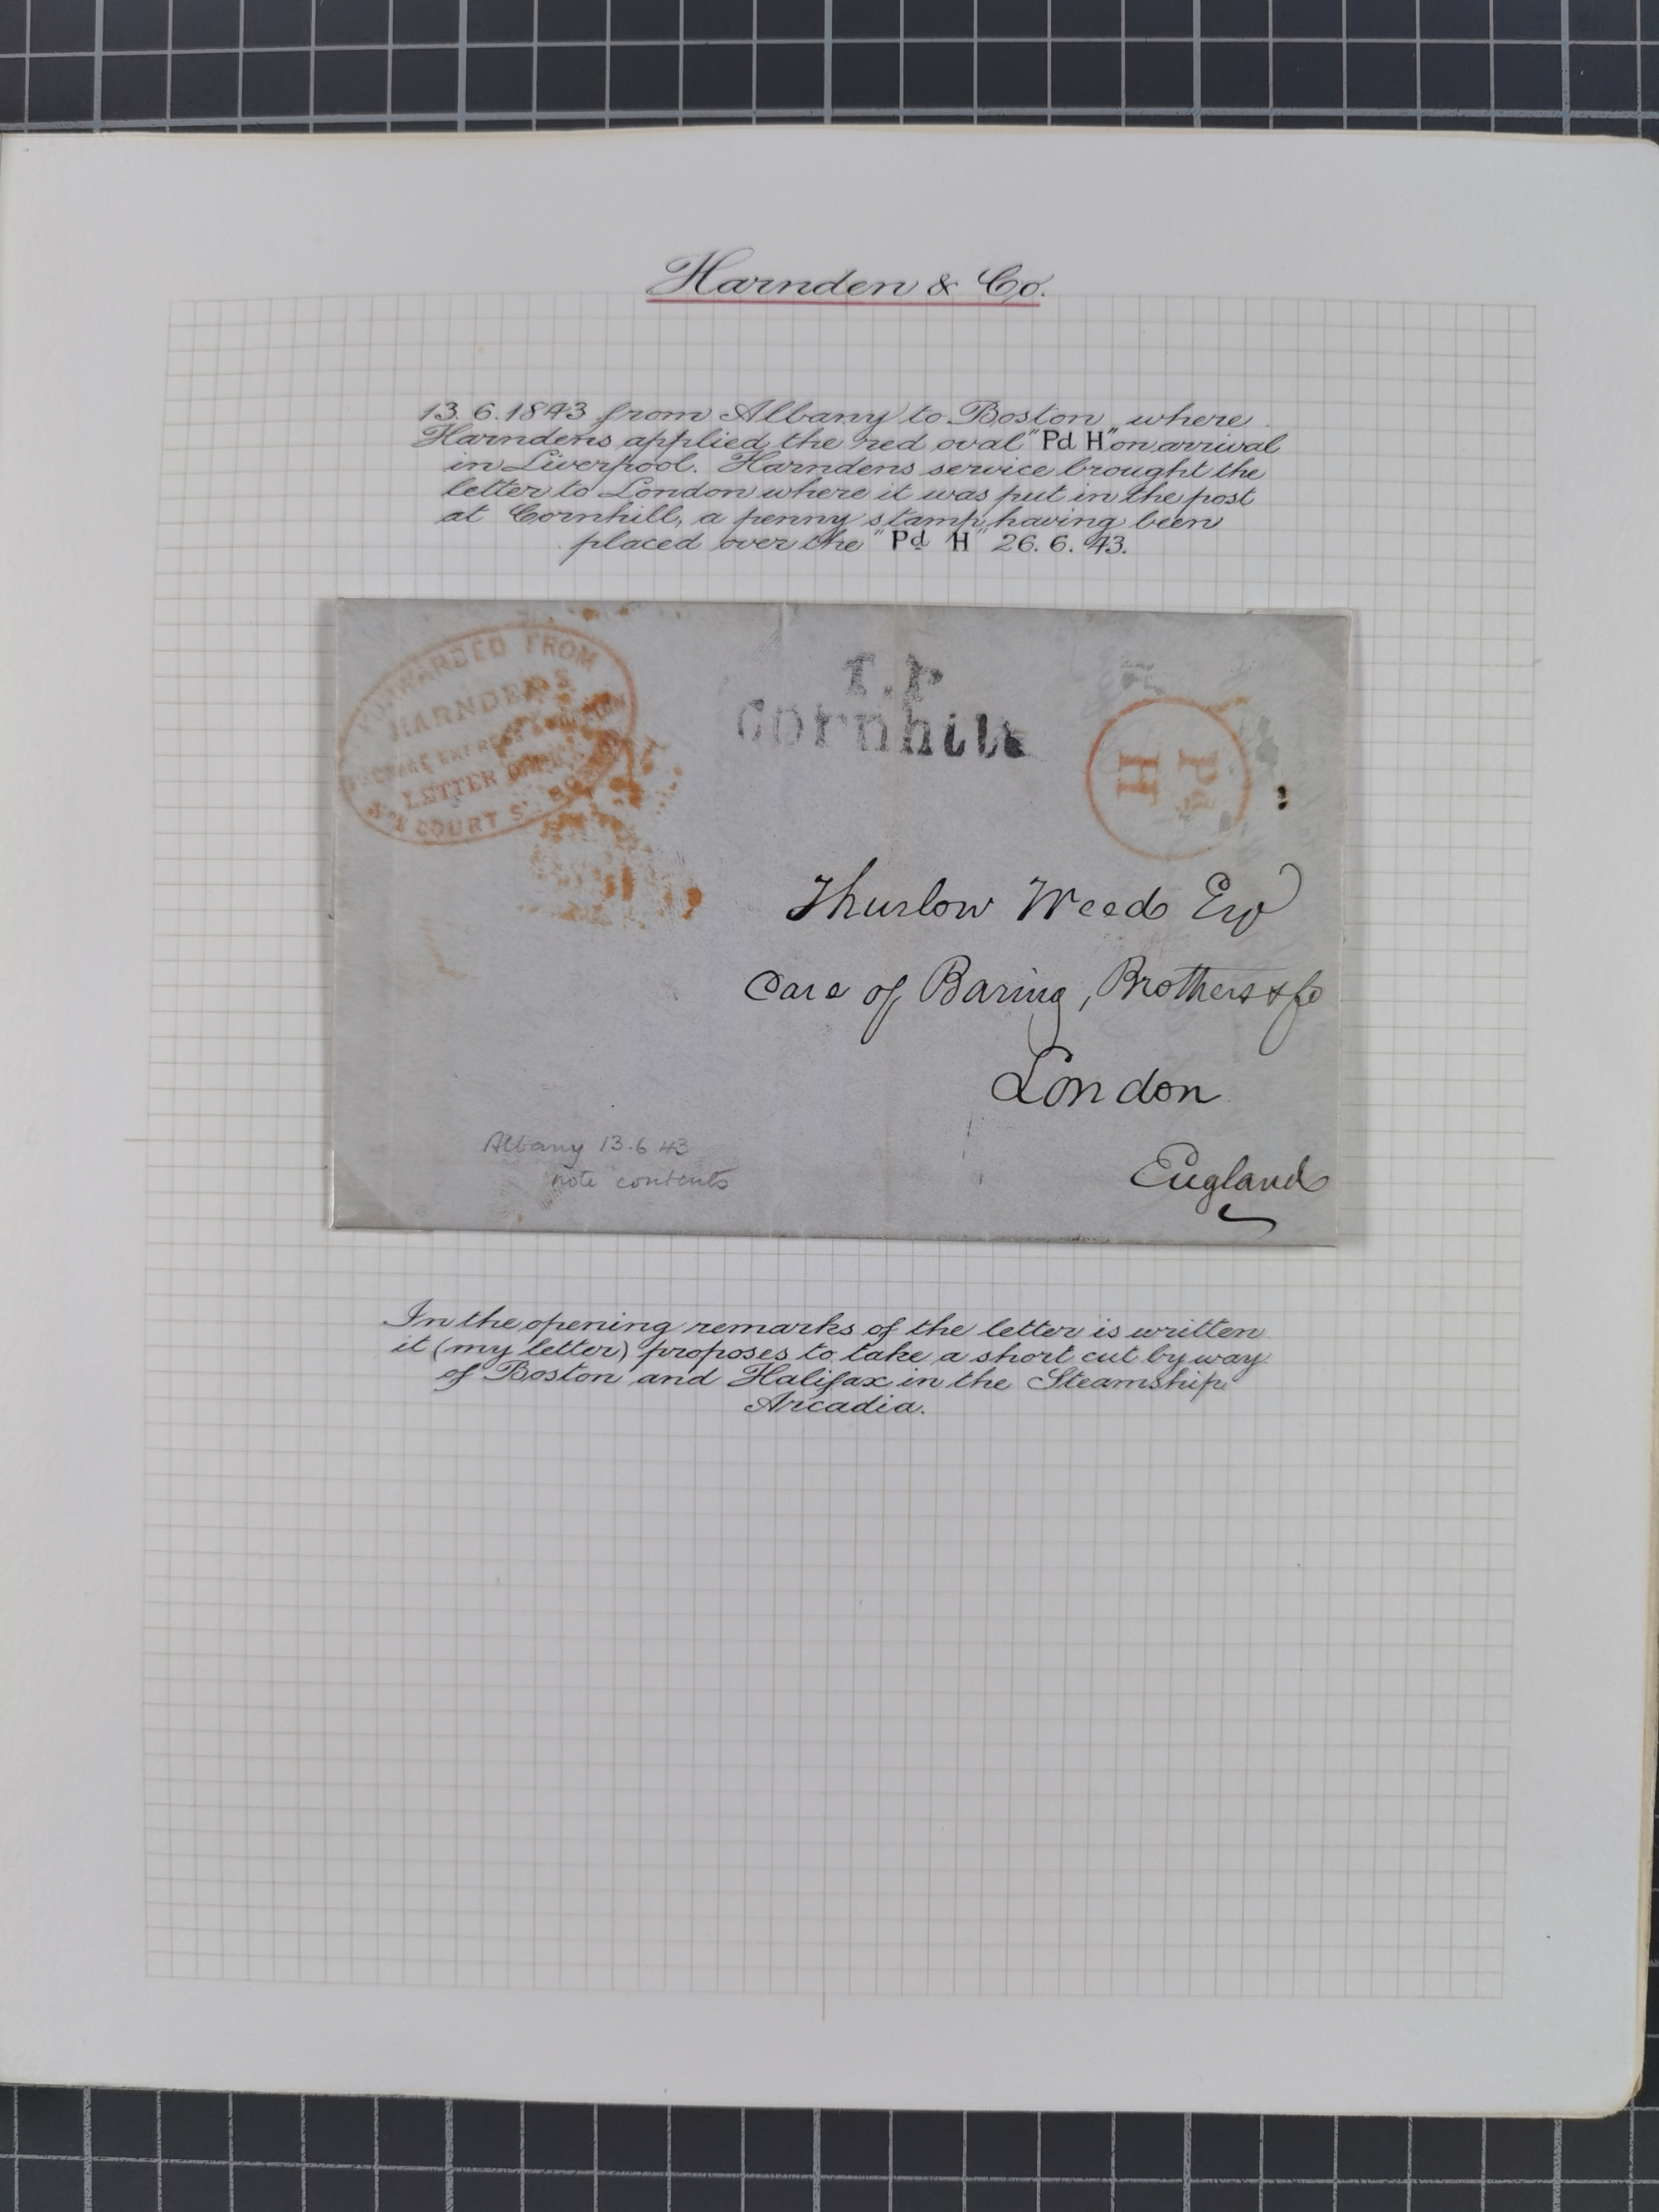 Harnden & Co.
13. 6. 1843 from Albany to Boston where
Harndens applied the red oval "Pd H" on arrival
in Liverpool. Harndens service brought the
letter to London where it was put in the post
at Cornhill, a penny stamp having been
placed over the "Pd H" 26. 6. 43.
FORWARDED FROM
HARNDEN'S
PACKAGE EXPRESS &
LETTER
COURT ST. BOSTON
T.P
Cornhill
Pd
H
Thurlow Weed Esq
Care of Baring, Brothers & Co
London
England
Albany 13.6 43
note contents
In the opening remarks of the letter is written
it (my letter) proposes to take a short cut by way
of Boston and Halifax in the Steamship
Arcadia.